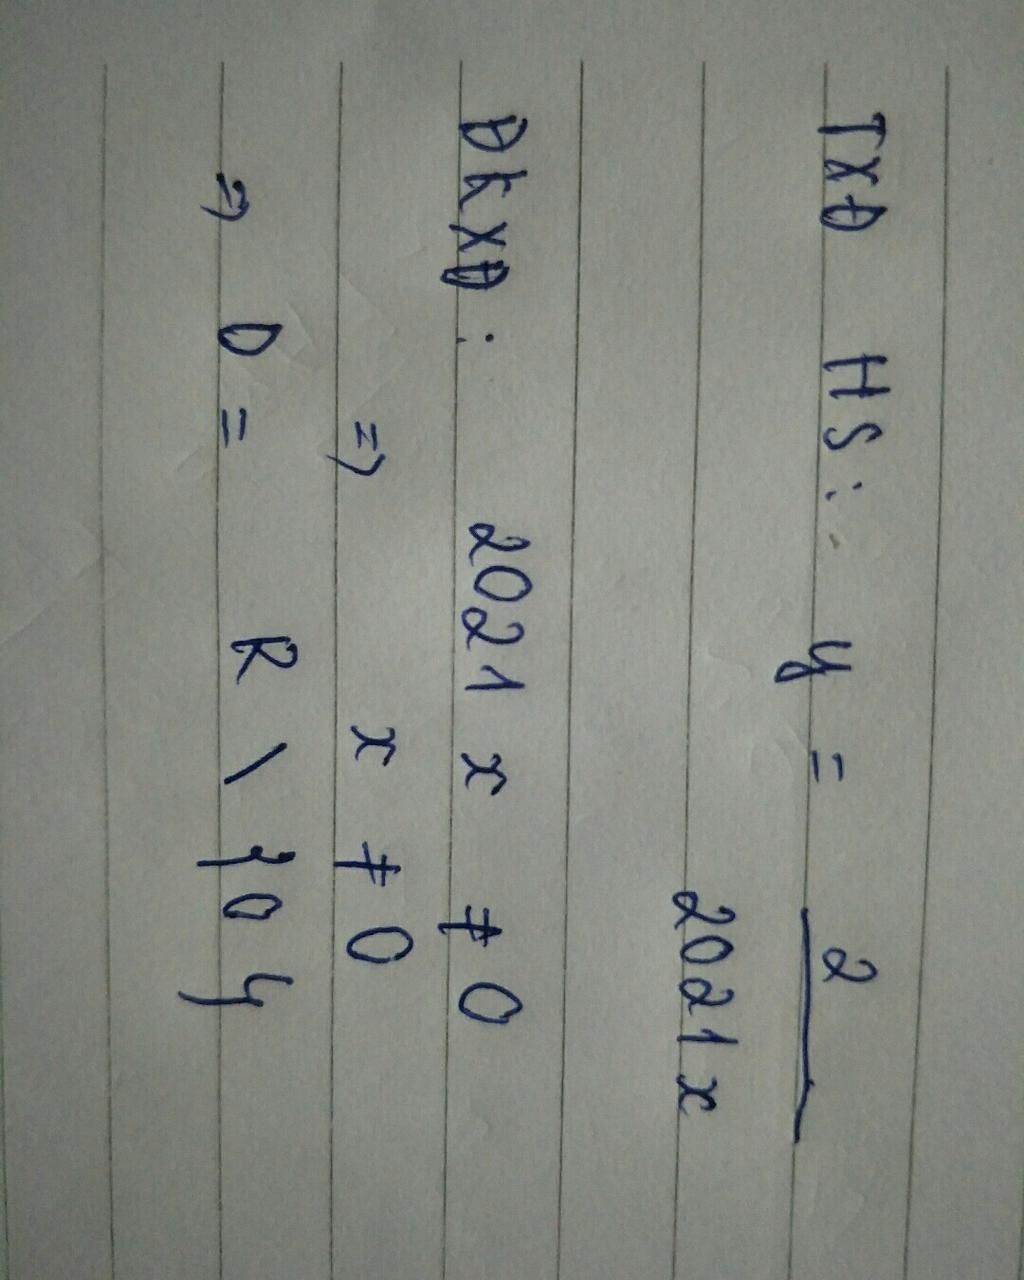 TXĐ HS: y = 2
2021x
ĐKXĐ: 2021 x ≠ 0
=> x ≠ 0
=> D = R \ {0}